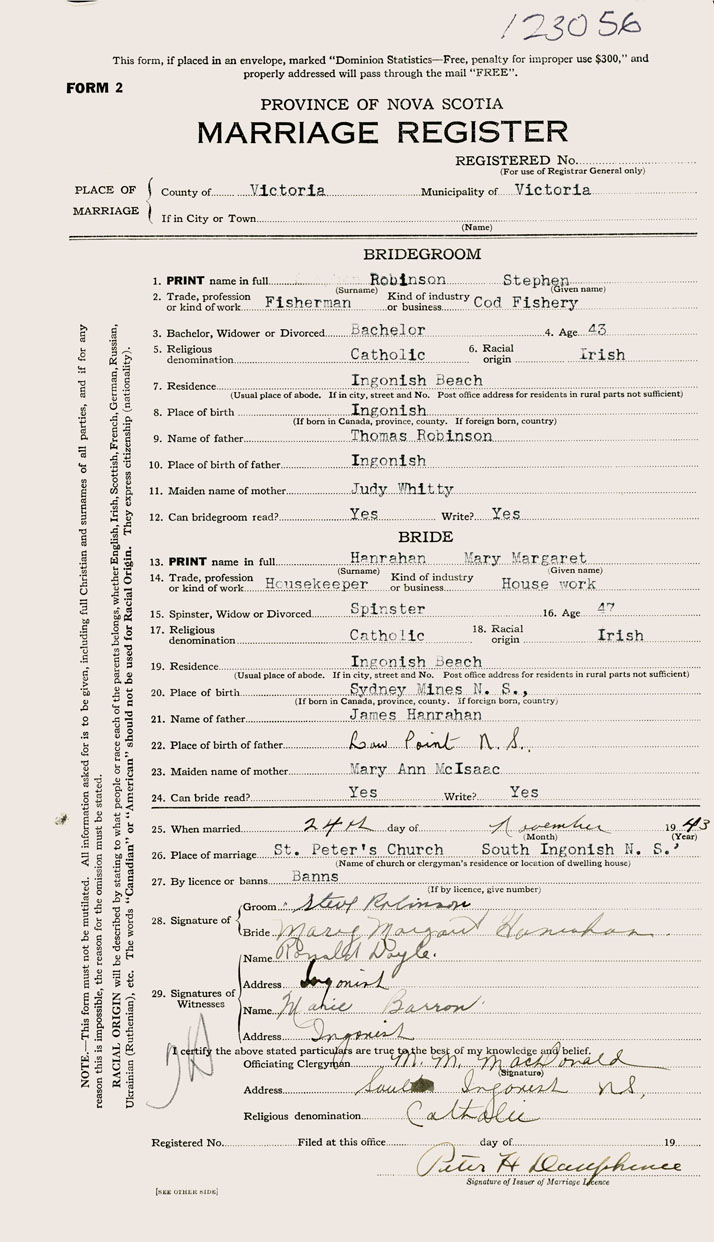 123056
This form, if placed in an envelope, marked "Dominion Statistics—Free, penalty for improper use $300," and
properly addressed will pass through the mail "FREE".
FORM 2
PROVINCE OF NOVA SCOTIA
MARRIAGE REGISTER
REGISTERED No.
(For use of Registrar General only)
PLACE OF MARRIAGE
County of Victoria Municipality of Victoria
If in City or Town
(Name)
BRIDEGROOM
1. PRINT name in full Robinson Stephen
(Surname) (Given name)
2. Trade, profession or kind of work Fisherman Kind of industry or business Cod Fishery
3. Bachelor, Widower or Divorced Bachelor 4. Age 43
5. Religious denomination Catholic 6. Racial origin Irish
7. Residence Ingonish Beach
(Usual place of abode. If in city, street and No. Post office address for residents in rural parts not sufficient)
8. Place of birth Ingonish
(If born in Canada, province, county. If foreign born, country)
9. Name of father Thomas Robinson
10. Place of birth of father Ingonish
11. Maiden name of mother Judy Whitty
12. Can bridegroom read? Yes Write? Yes
BRIDE
13. PRINT name in full Hanrahan Mary Margaret
(Surname) (Given name)
14. Trade, profession or kind of work Housekeeper Kind of industry or business House work
15. Spinster, Widow or Divorced Spinster 16. Age 47
17. Religious denomination Catholic 18. Racial origin Irish
19. Residence Ingonish Beach
(Usual place of abode. If in city, street and No. Post office address for residents in rural parts not sufficient)
20. Place of birth Sydney Mines N. S.,
(If born in Canada, province, county. If foreign born, country)
21. Name of father James Hanrahan
22. Place of birth of father Low Point N. S.
23. Maiden name of mother Mary Ann McIsaac
24. Can bride read? Yes Write? Yes
25. When married 24th day of November 1943
(Month) (Year)
26. Place of marriage St. Peter's Church South Ingonish N. S.'
(Name of church or clergyman's residence or location of dwelling house)
27. By licence or banns Banns
(If by licence, give number)
28. Signature of
Groom Steve Robinson
Bride Mary Margaret Hanrahan
29. Signatures of Witnesses
Name Ronald Doyle.
Address Ingonish
Name Marie Barron
Address Ingonish
I certify the above stated particulars are true to the best of my knowledge and belief.
Officiating Clergyman M. M. MacDonald
(Signature)
Address South Ingonish N.S,
Religious denomination Catholic
Registered No. Filed at this office day of 19
Peter H Dauphinee
Signature of Issuer of Marriage Licence
[SEE OTHER SIDE]
NOTE.—This form must not be mutilated. All information asked for is to be given, including full Christian and surnames of all parties, and if for any
reason this is impossible, the reason for the omission must be stated.
RACIAL ORIGIN will be described by stating to what people or race each of the parents belongs, whether English, Irish, Scottish, French, German, Russian,
Ukrainian (Ruthenian), etc. The words "Canadian" or "American" should not be used for Racial Origin. They express citizenship (nationality).